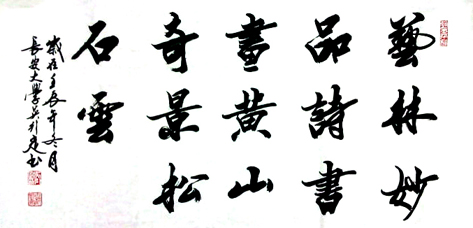 藝林妙
品詩書
畫黃山
奇景松
石雲
歲在壬辰年冬月
長安大學吳引定書